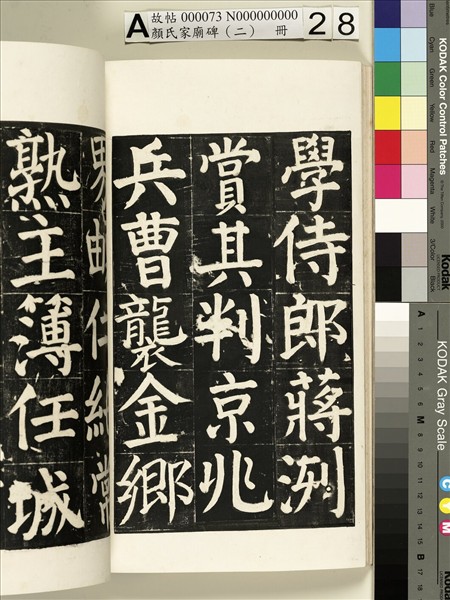 A 故帖 000073 N000000000 28
顏氏家廟碑(二) 冊
學侍郎蔣洌
賞其判京兆
兵曹襲金鄉
熟主簿任城
KODAK Color Control Patches
Blue
Cyan
Green
Yellow
Red
Magenta
White
3/Color
Black
Kodak
KODAK Gray Scale
A 1 2 3 4 5 6 M 8 9 10 11 12 13 14 15 B 17 18
C Y M
Kodak